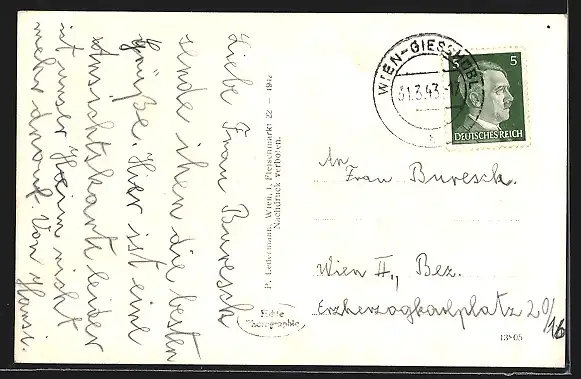 Liebe Frau Buresch
sende ihen die besten
Grüße. Hier ist eine
Ansichtskarte leider
ist unser Heim nicht
mehr drauf. Von Hansi.
P. Ledermann, Wien, I, Fleischmarkt 22 – 1942
Nachdruck verboten.
Echte
Photographie
WIEN-GIESSHÜBL
31.3.43
5 5
DEUTSCHES REICH
An
Frau Buresch.
Wien II., Bez.
Erzherzogkarlplatz 20/16
13905